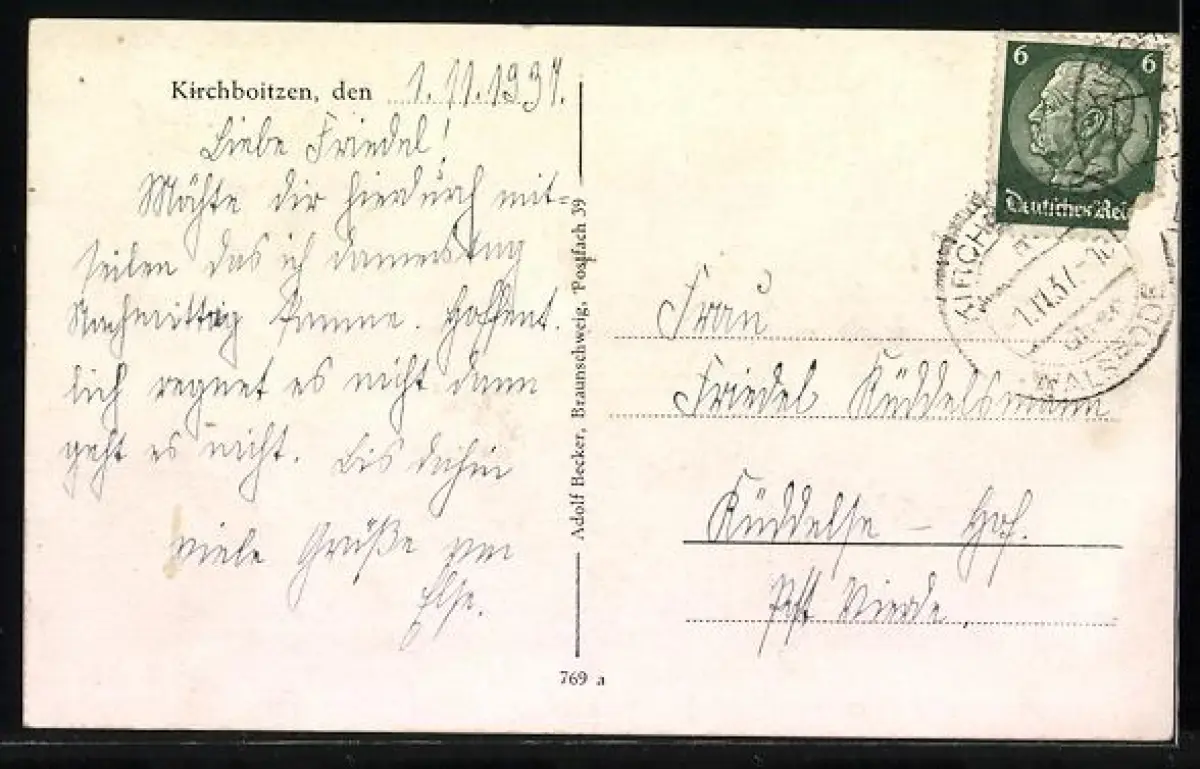 Kirchboitzen, den 1.11.1937.
Liebe Friedel!
Möchte dir hierdurch mit=
teilen das ich Donnerstag
Nachmittag komme. Hoffent.
lich regnet es nicht dann
geht es nicht. Bis dahin
viele Grüße von
Else.
Adolf Becker, Braunschweig, Postfach 39
769 a
6 6
Deutsches Reich
1.11.37.-10
WALSRODE
Frau
Friedel
Hof.
Post Vierde.